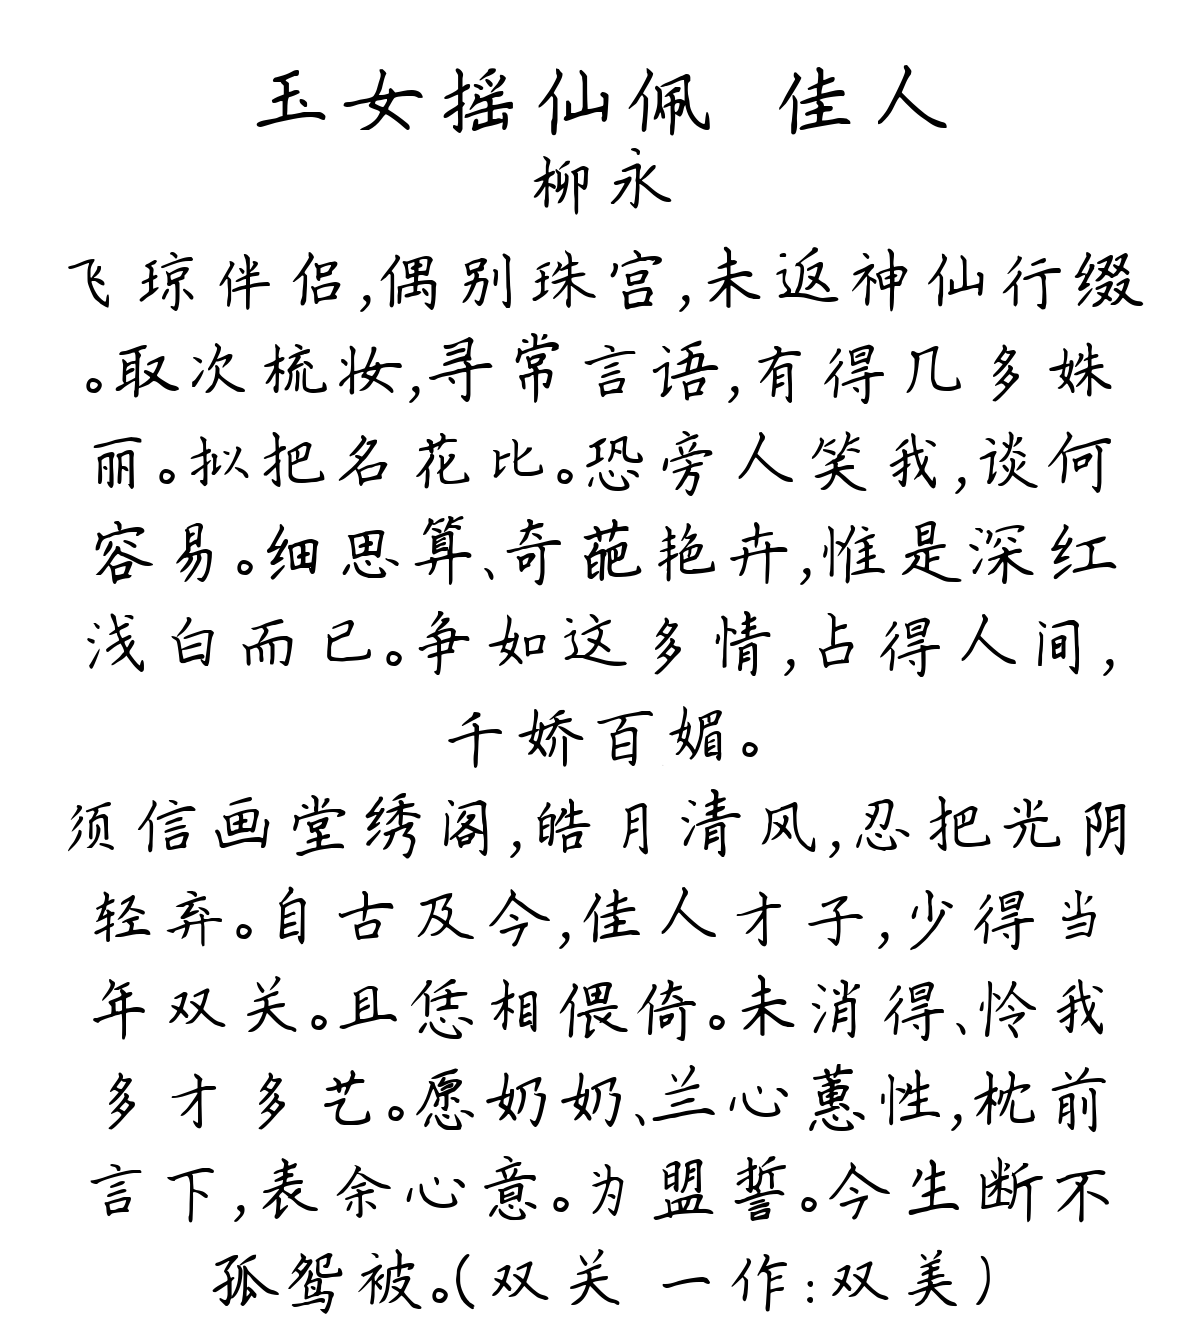 玉女摇仙佩 佳人
柳永
飞琼伴侣,偶别珠宫,未返神仙行缀
。取次梳妆,寻常言语,有得几多姝
丽。拟把名花比。恐旁人笑我,谈何
容易。细思算、奇葩艳卉,惟是深红
浅白而已。争如这多情,占得人间,
千娇百媚。
须信画堂绣阁,皓月清风,忍把光阴
轻弃。自古及今,佳人才子,少得当
年双关。且恁相偎倚。未消得、怜我
多才多艺。愿奶奶、兰心蕙性,枕前
言下,表余心意。为盟誓。今生断不
孤鸳被。(双关 一作:双美)